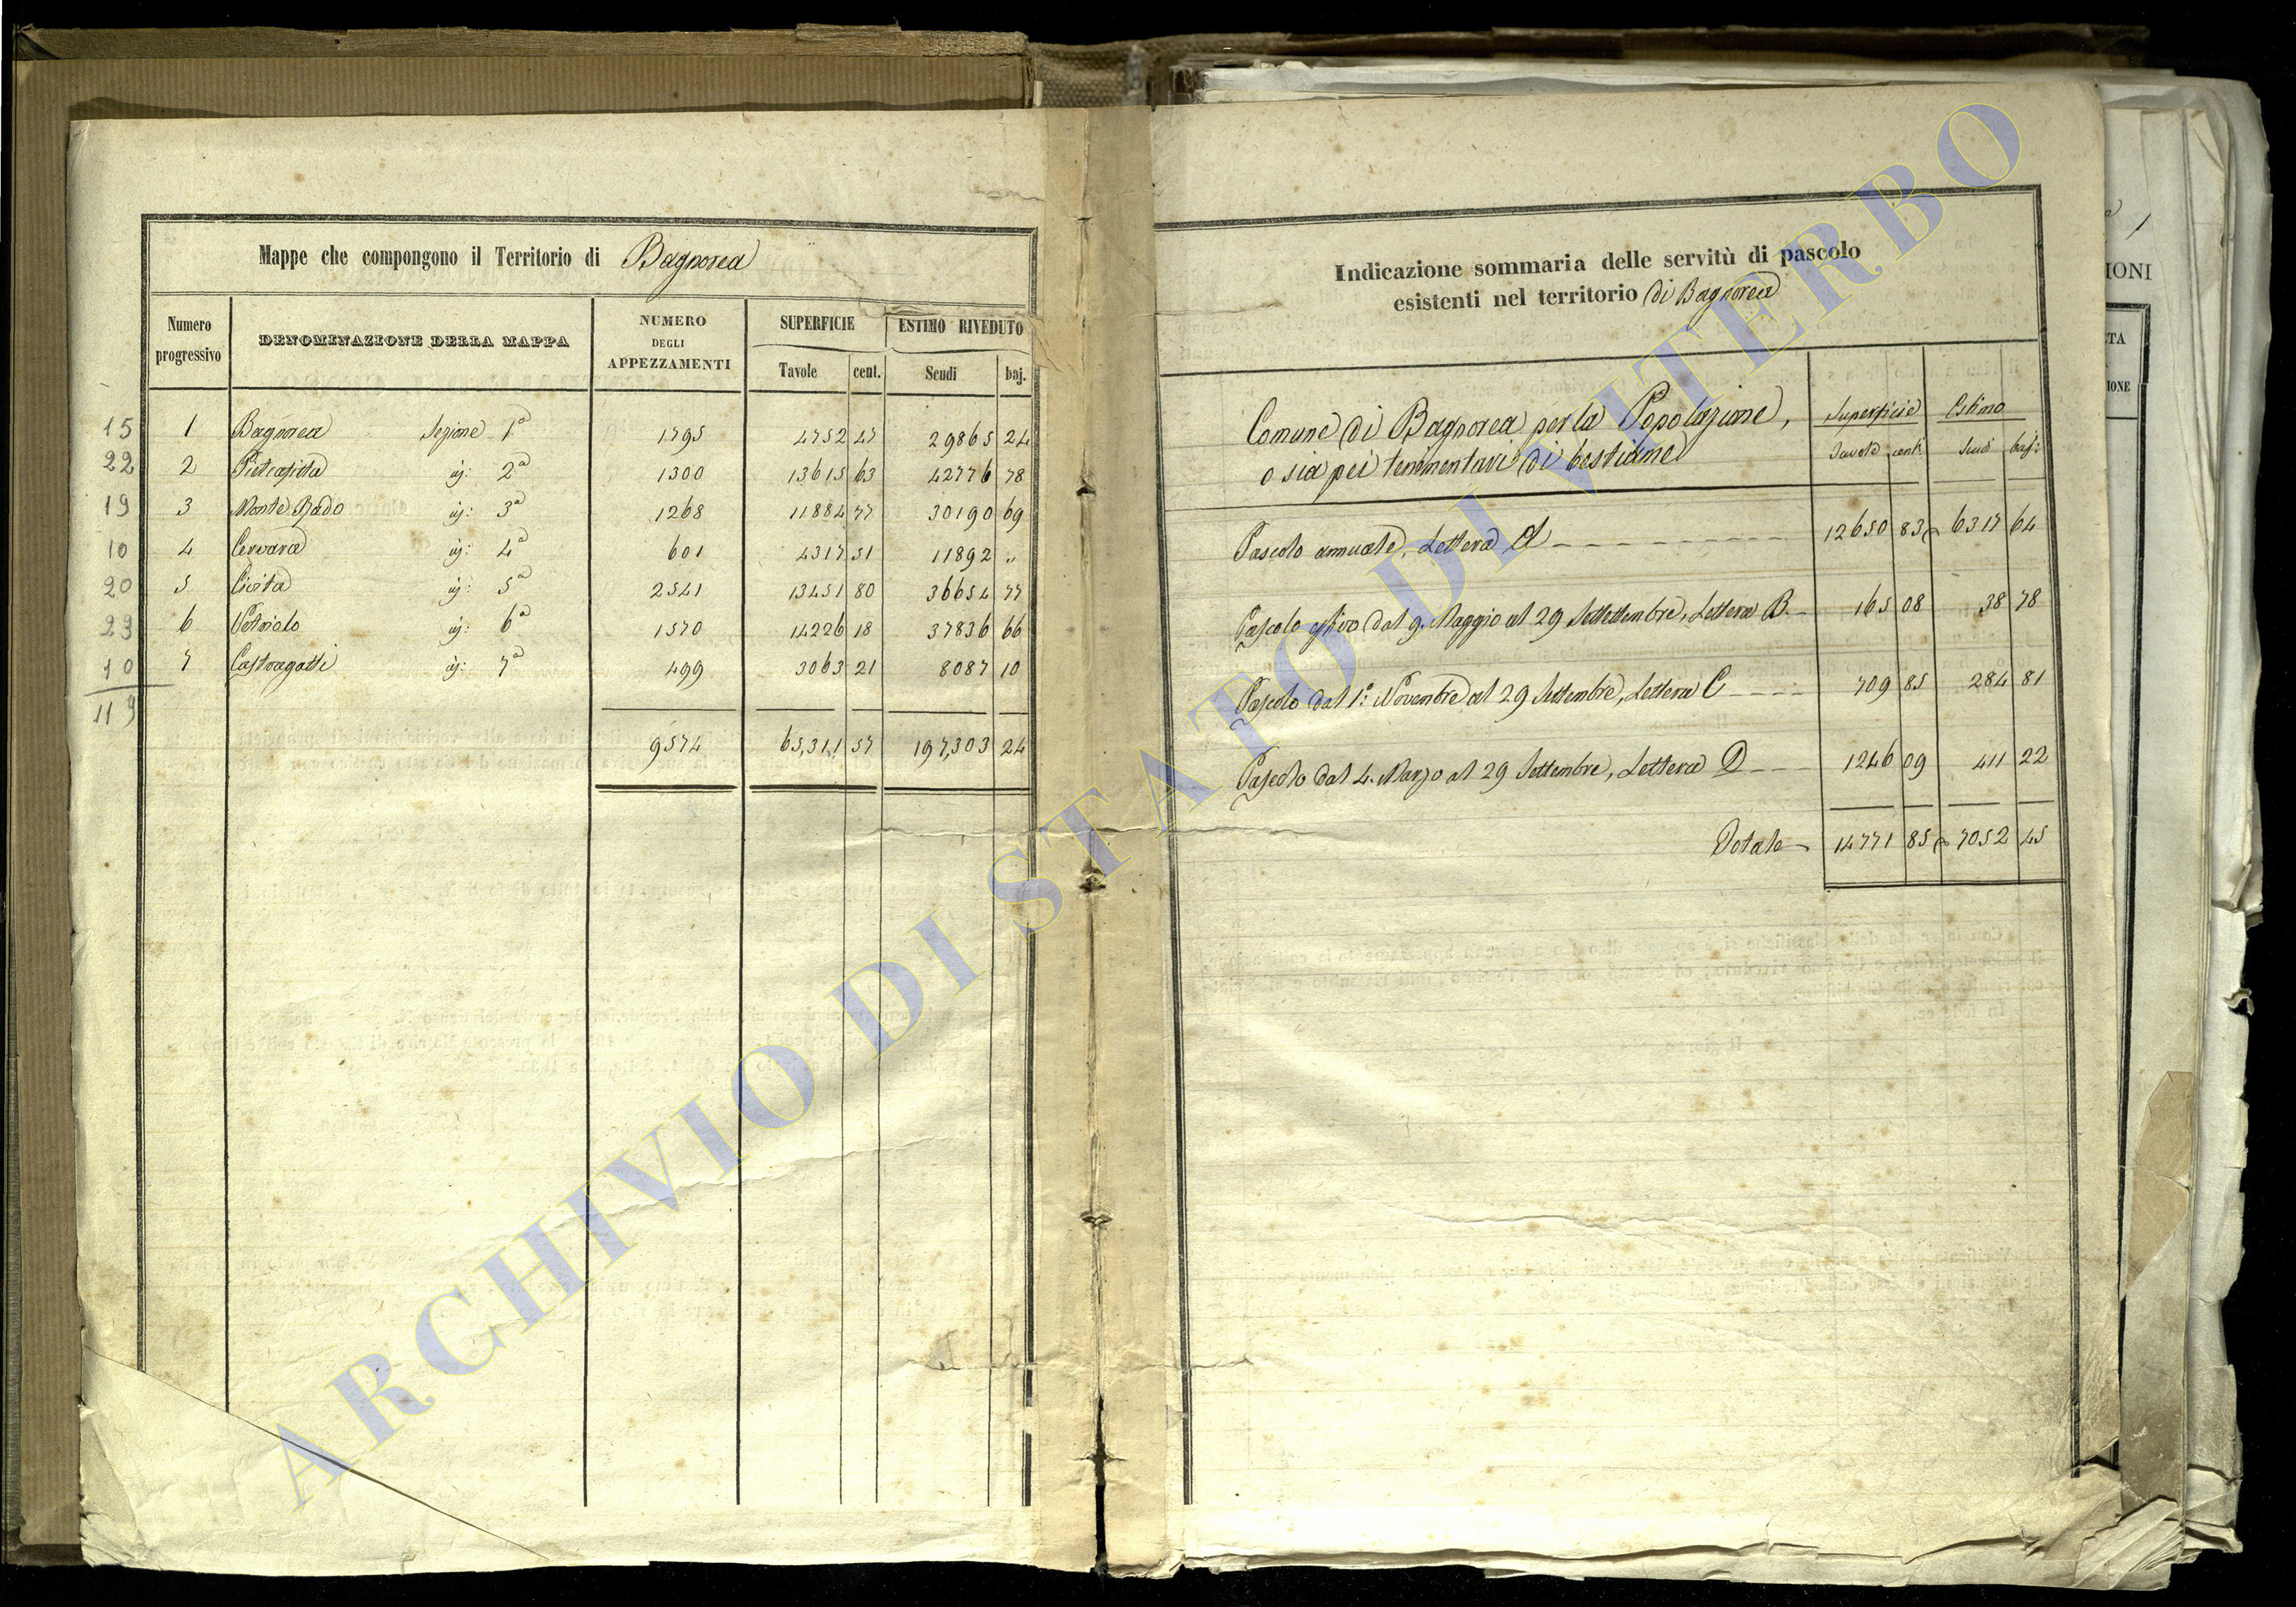 Mappe che compongono il Territorio di Bagnorea
Numero progressivo
DENOMINAZIONE DELLA MAPPA
NUMERO DEGLI APPEZZAMENTI
SUPERFICIE
ESTIMO RIVEDUTO
Tavole cent. Scudi baj.
15 1 Bagnorea Sezione 1ª 1795 4752 47 29865 24
22 2 Pietrafitta iẽ: 2ª 1300 13615 63 42776 78
19 3 Monte Rado iẽ: 3ª 1268 11884 77 30190 69
10 4 Cervara iẽ: 4ª 601 4317 51 11892 "
20 5 Civita iẽ: 5ª 2541 13451 80 36654 77
23 6 Vetriolo iẽ: 6ª 1570 14226 18 37836 66
10 7 Castragatti iẽ: 7ª 499 3063 21 8087 10
119
9574 65,311 57 197,303 24
Indicazione sommaria delle servitù di pascolo
esistenti nel territorio di Bagnorea
Comune di Bagnorea per la Popolazione,
o sia pei temmentarj di bestiame
Superficie Estimo
Tavole cent. Scudi baj:
Pascolo annuale, Lettera A 12650 83 6317 64
Pascolo estivo dal 9. Maggio al 29 Settettembre, Lettera B 165 08 38 78
Pascolo dal 1º: Novembre al 29 Settembre, Lettera C 709 85 284 81
Pascolo dal 4. Marzo al 29 Settembre, Lettera D 1246 09 411 22
Totale 14771 85 7052 45
1
IONI
TA
IONE
ARCHIVIO DI STATO DI VITERBO